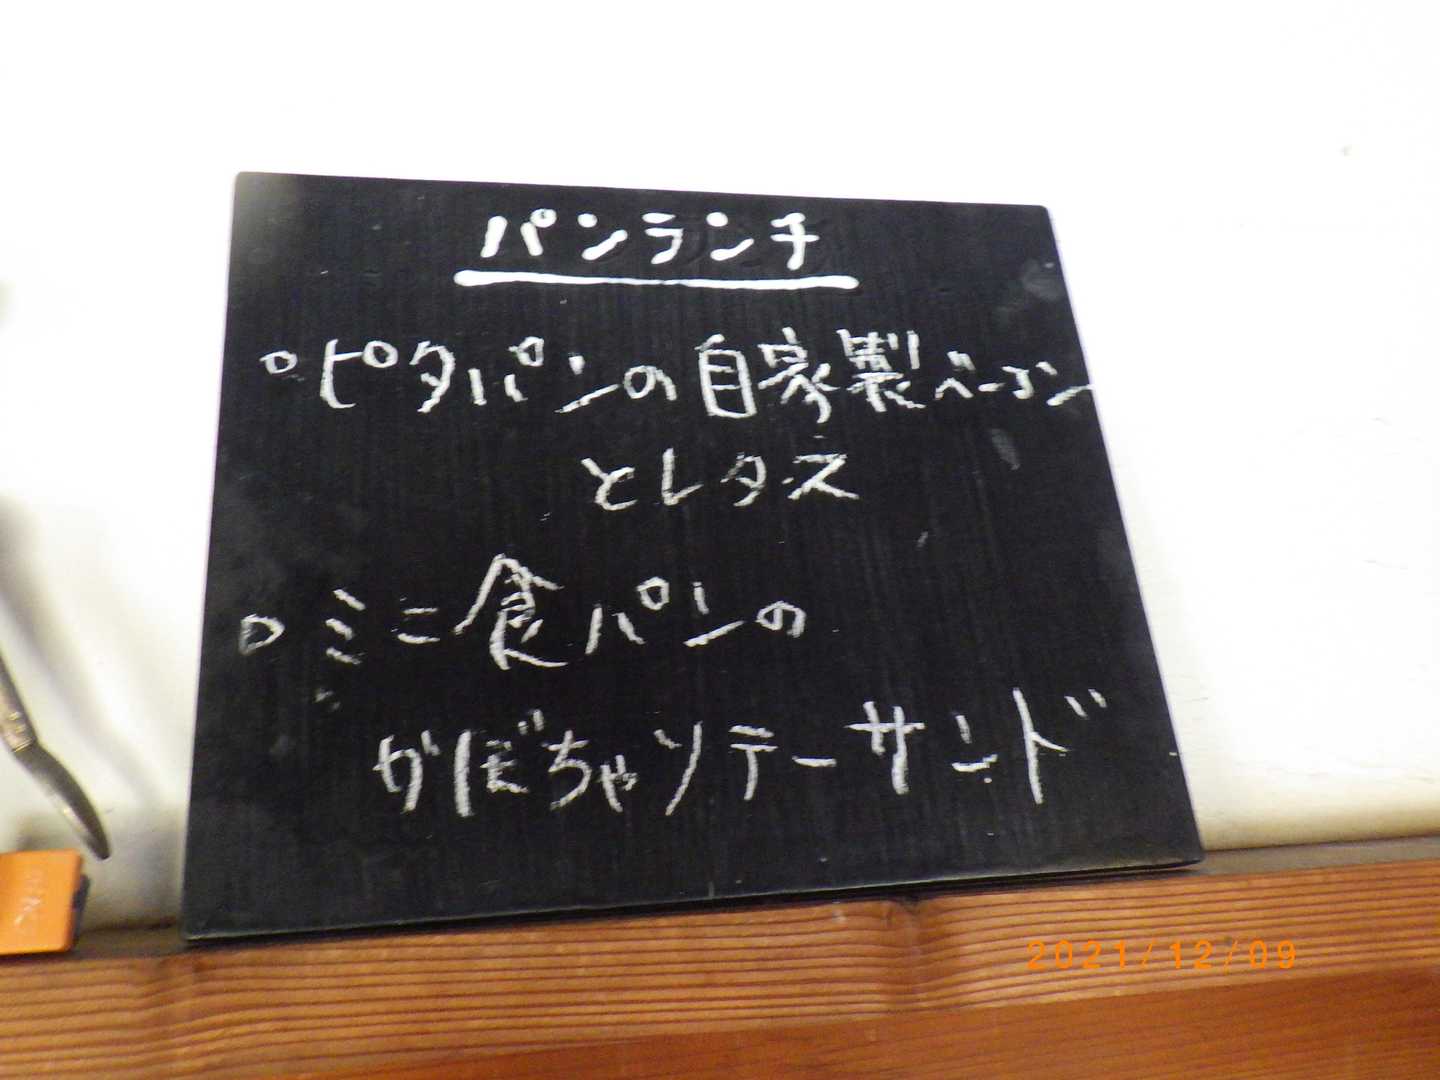 パンランチ
○ピタパンの自家製ベーコン
とレタス
○ミニ食パンの
かぼちゃソテーサンド
2021/12/09